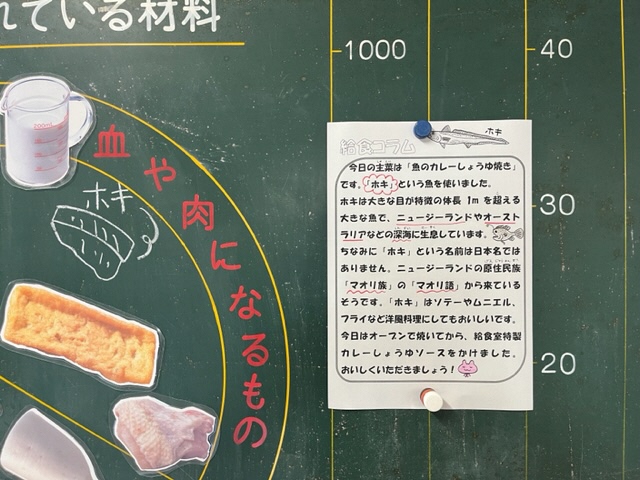 れている材料
1000
40
30
20
血や肉になるもの
ホキ
ホキ
給食コラム
今日の主菜は「魚のカレーしょうゆ焼き」
です。「ホキ」という魚を使いました。
ホキは大きな目が特徴の体長 1mを超える
大きな魚で、ニュージーランドやオースト
ラリアなどの深海に生息しています。
ちなみに「ホキ」という名前は日本名では
ありません。ニュージーランドの原住民族
「マオリ族」の「マオリ語」から来ている
そうです。「ホキ」はソテーやムニエル、
フライなど洋風料理にしてもおいしいです。
今日はオーブンで焼いてから、給食室特製
カレーしょうゆソースをかけました。
おいしくいただきましょう！